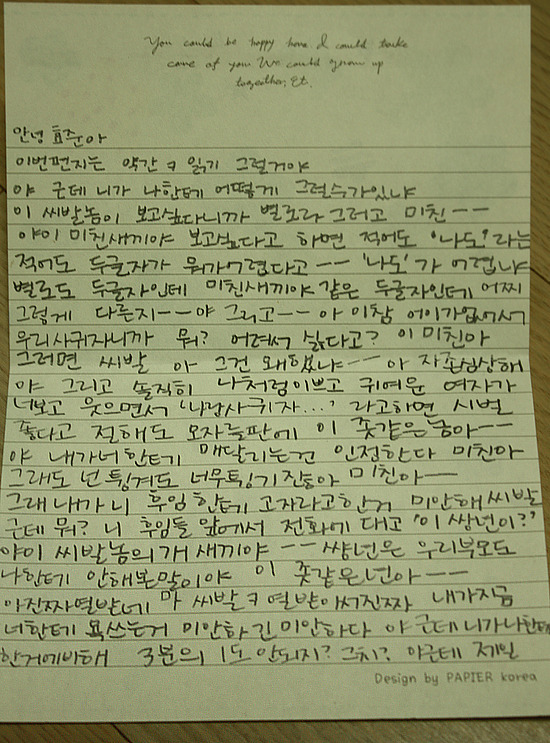 You could be happy here I could take
care of you We could grow up
together, Et.
안녕 효준아
이번편지는 약간 ㅋ 읽기 그럴거야
야 근데 니가 나한테 어떻게 그럴수가있냐
이 씨발놈이 보고싶다니까 별로라 그러고 미친--
야이 미친새끼야 보고싶다고 하면 적어도 '나도'라는
적어도 두글자가 뭐가어렵다고-- '나도'가 어렵냐
별로도 두글자인데 미친새끼야 같은 두글자인데 어찌
그렇게 다른지--야 그리고-- 아 미참 어이가없어서
우리사귀자니까 뭐? 어려서 싫다고? 이 미친아
그러면 씨발 아 그건 왜했냐-- 아 자존심상해
야 그리고 솔직히 나처럼이쁘고 귀여운 여자가
너보고 웃으면서 '나랑사귀자...' 라고하면 시벌
좋다고 절해도 모자늘판에 이 좆같은놈아--
야 내가너한테 매달리는건 인정한다 미친아
그래도 넌 튕겨도 너무튕기잖아 미친아--
그래 내가 니 후임한테 고자라고한거 미안해 씨발
근데 뭐? 니 후임들 앞에서 전화에 대고 '이 쌍년이?'
야이 씨발놈의개새끼야 -- 썅년은 우리부모도
나한테 안해본말이야 이 좆같은년아--
아진짜열받네 마 씨발 ㅋ 열받아서진짜 내가지금
너한테 욕쓰는거 미안하긴미안하다 야 근데니가나한테
한거에비해 3분의 1도 안되지? 그치? 아근데 제일
Design by PAPIER korea